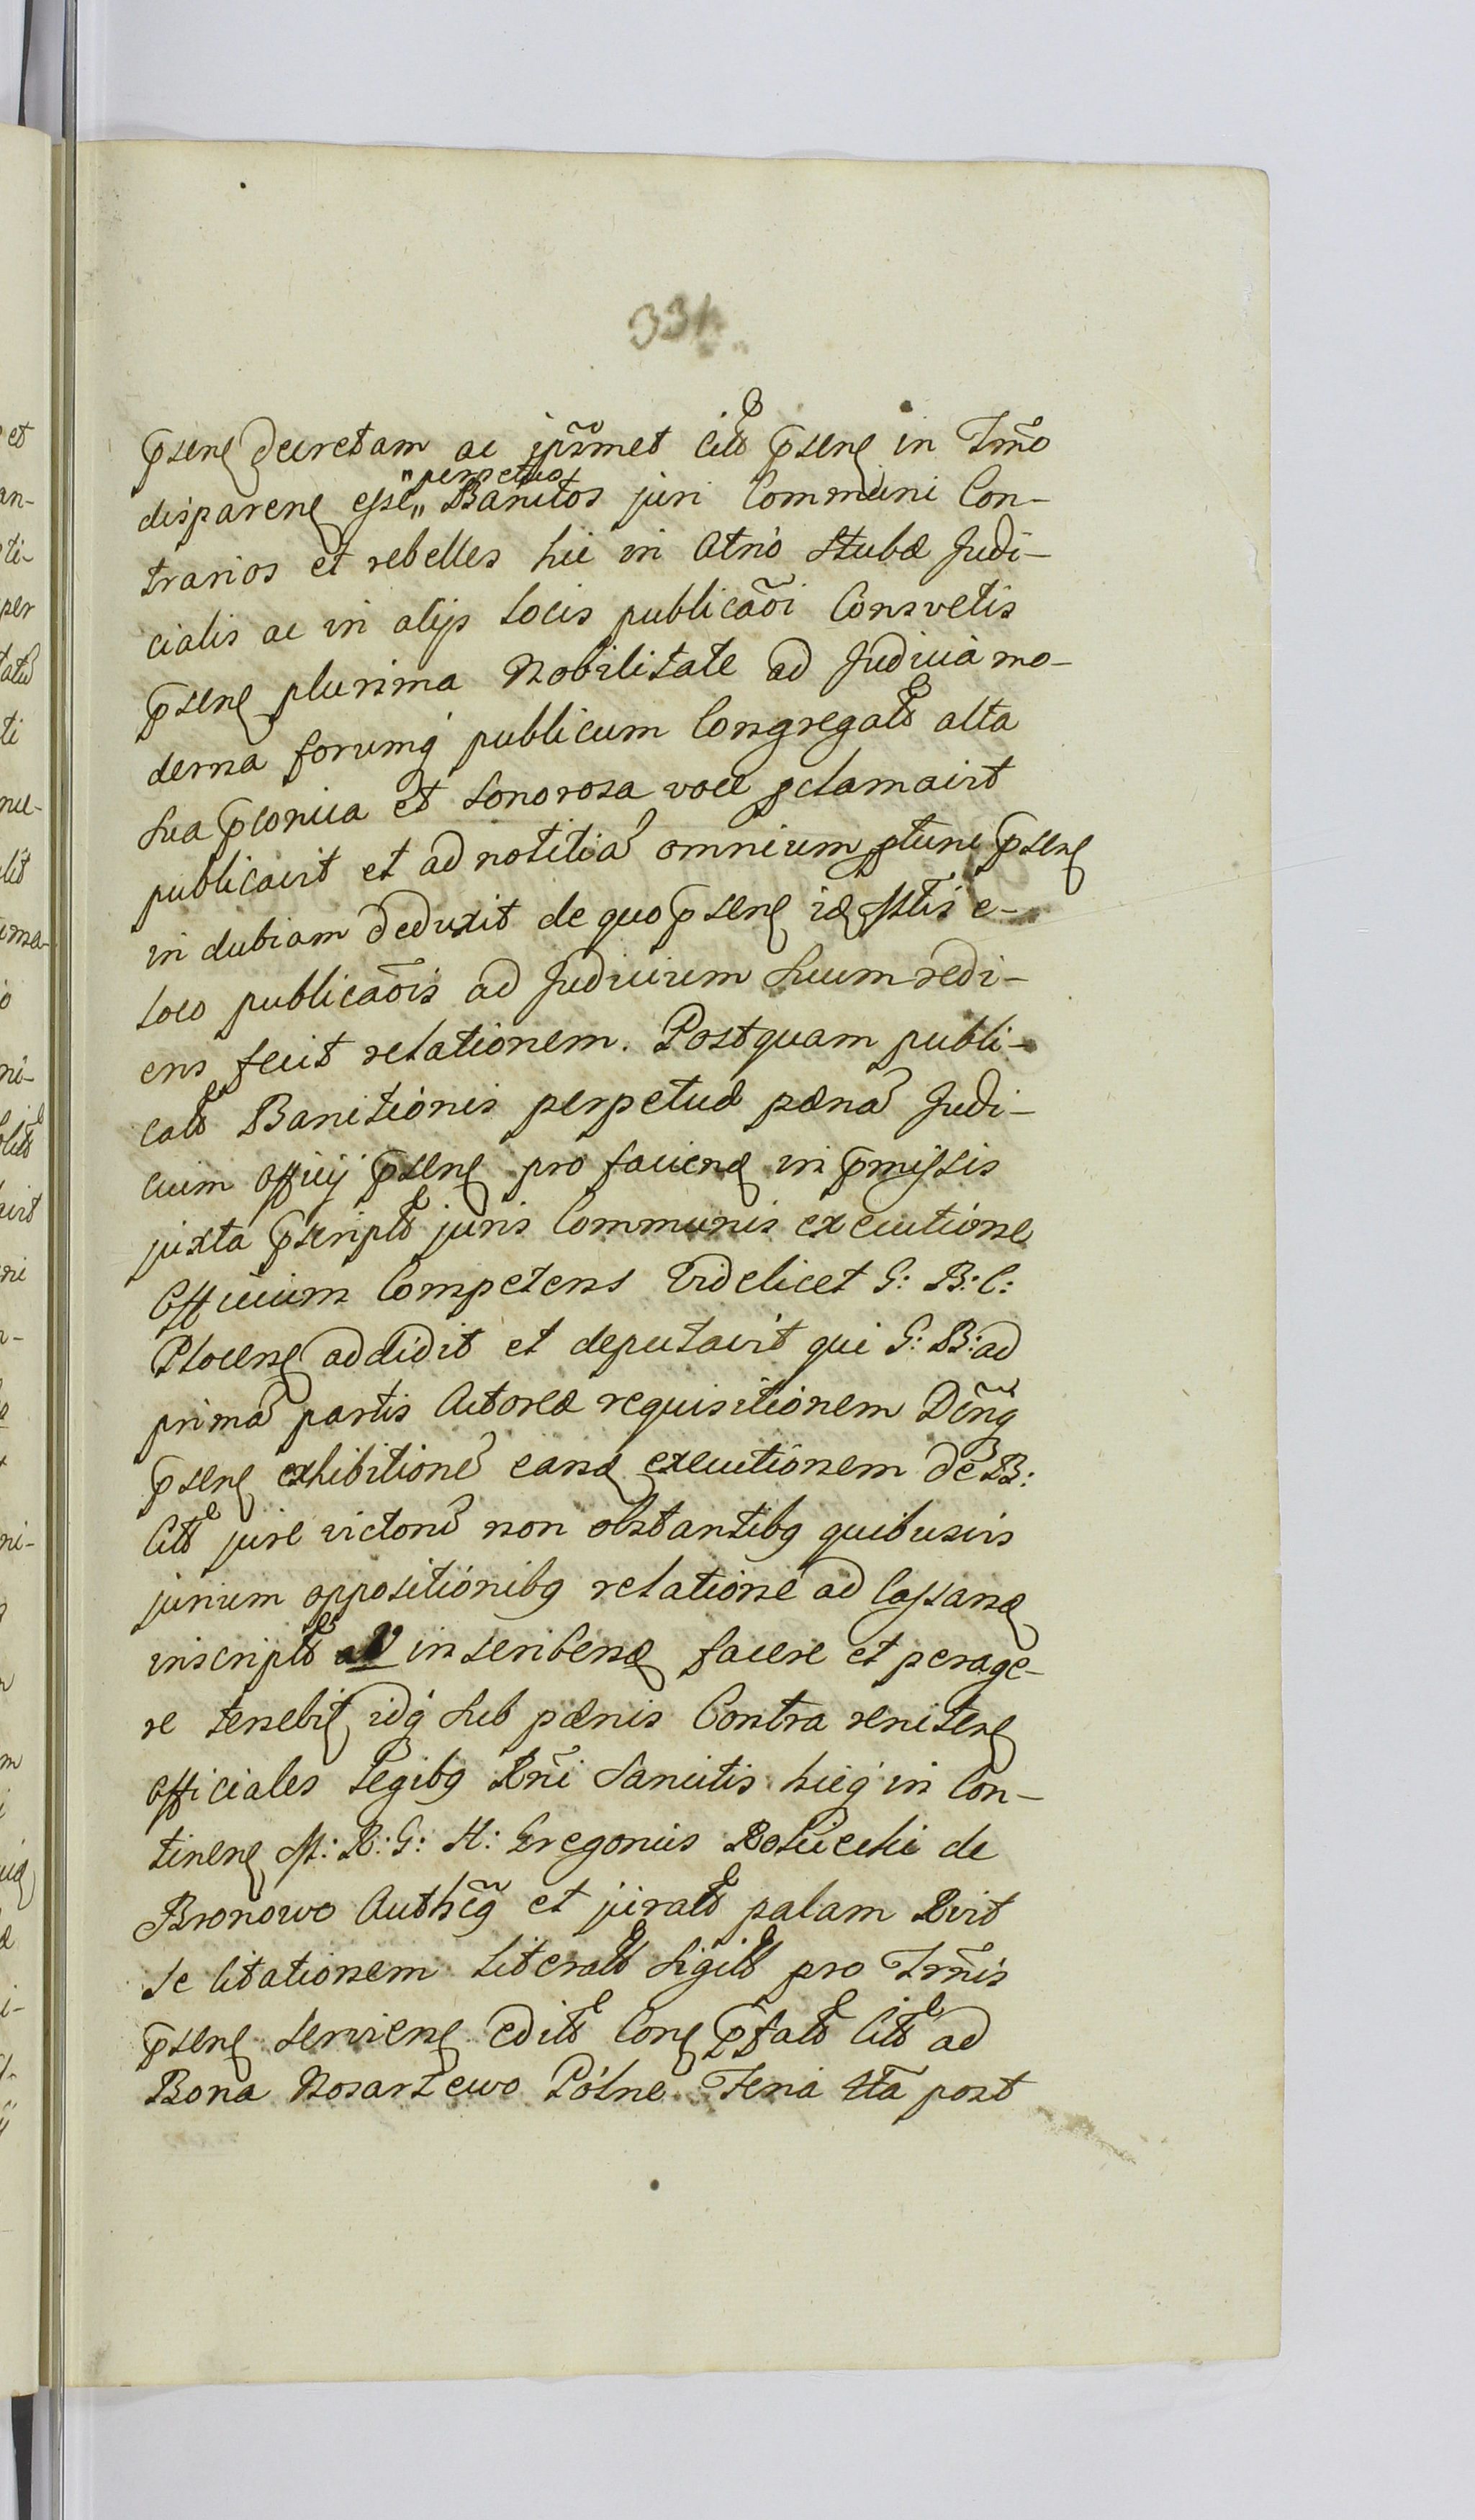 331.
p̄sen̨ decretam ac ip̄s̄met Citt̃ p̄sen̨ in Tm̄o
disparen̨ esse „perpetuos„ Banitos juri Communi Con-
trarios et rebelles hic in Atrio Stubæ Judi-
cialis ac in alijs locis publicaõi Consvetis
p̄sen̨ plurima Nobilitate ad Judicia mo-
derna forumq́ publicum Congregatt̃ alta
sua p̄conica et sonorosa voce pclamavit
publicavit et ad notitiã omnium ptunc p̄sen̨
in dubiam deduxit de quo p̄sen̨ id̨ Mtis e-
loco publicaõis ad Judicium suum redi-
ens fecit relationem. Postquam publi-
catt̃ Banitionis perpetuæ pænã Judi-
cium officij p̄sen̨ pro faciend̨ in p̄missis
juxta p̄scriptt̃ juris Communis executione
Officium Competens Videlicet G: B: C:
Plocens̨ addidit et deputavit qui G: B: ad
primã partis Actoreæ requisitionem D̄c̄rīq
p̄sen̨ exhibitionẽ eand̨ executionem dē B:
Citt̃ jure victorũ non obstantibq quibusvis
jurium oppositionibq relatione ad Cassand̨
inscriptt̃ V inscribend̨ facere et perage-
re tenebit̨ idq́ sub pænis Contra reniten̨
officiales Legibq R̄ñi Sancitis hicq́ in Con-
tinen̨ M: R: G: H: Gregorius Rościechi de
Bronowo Auth̄c̄q et juratt̃ palam Rvit
se Citationem Literatt̃ Sigill̃ pro Tm̄is
p̄sen̨ servien̨ editt̃ Con̨ p̄fatt̃ Citt̃ ad
Bona Nosarzewo Polne Feria 4tã post